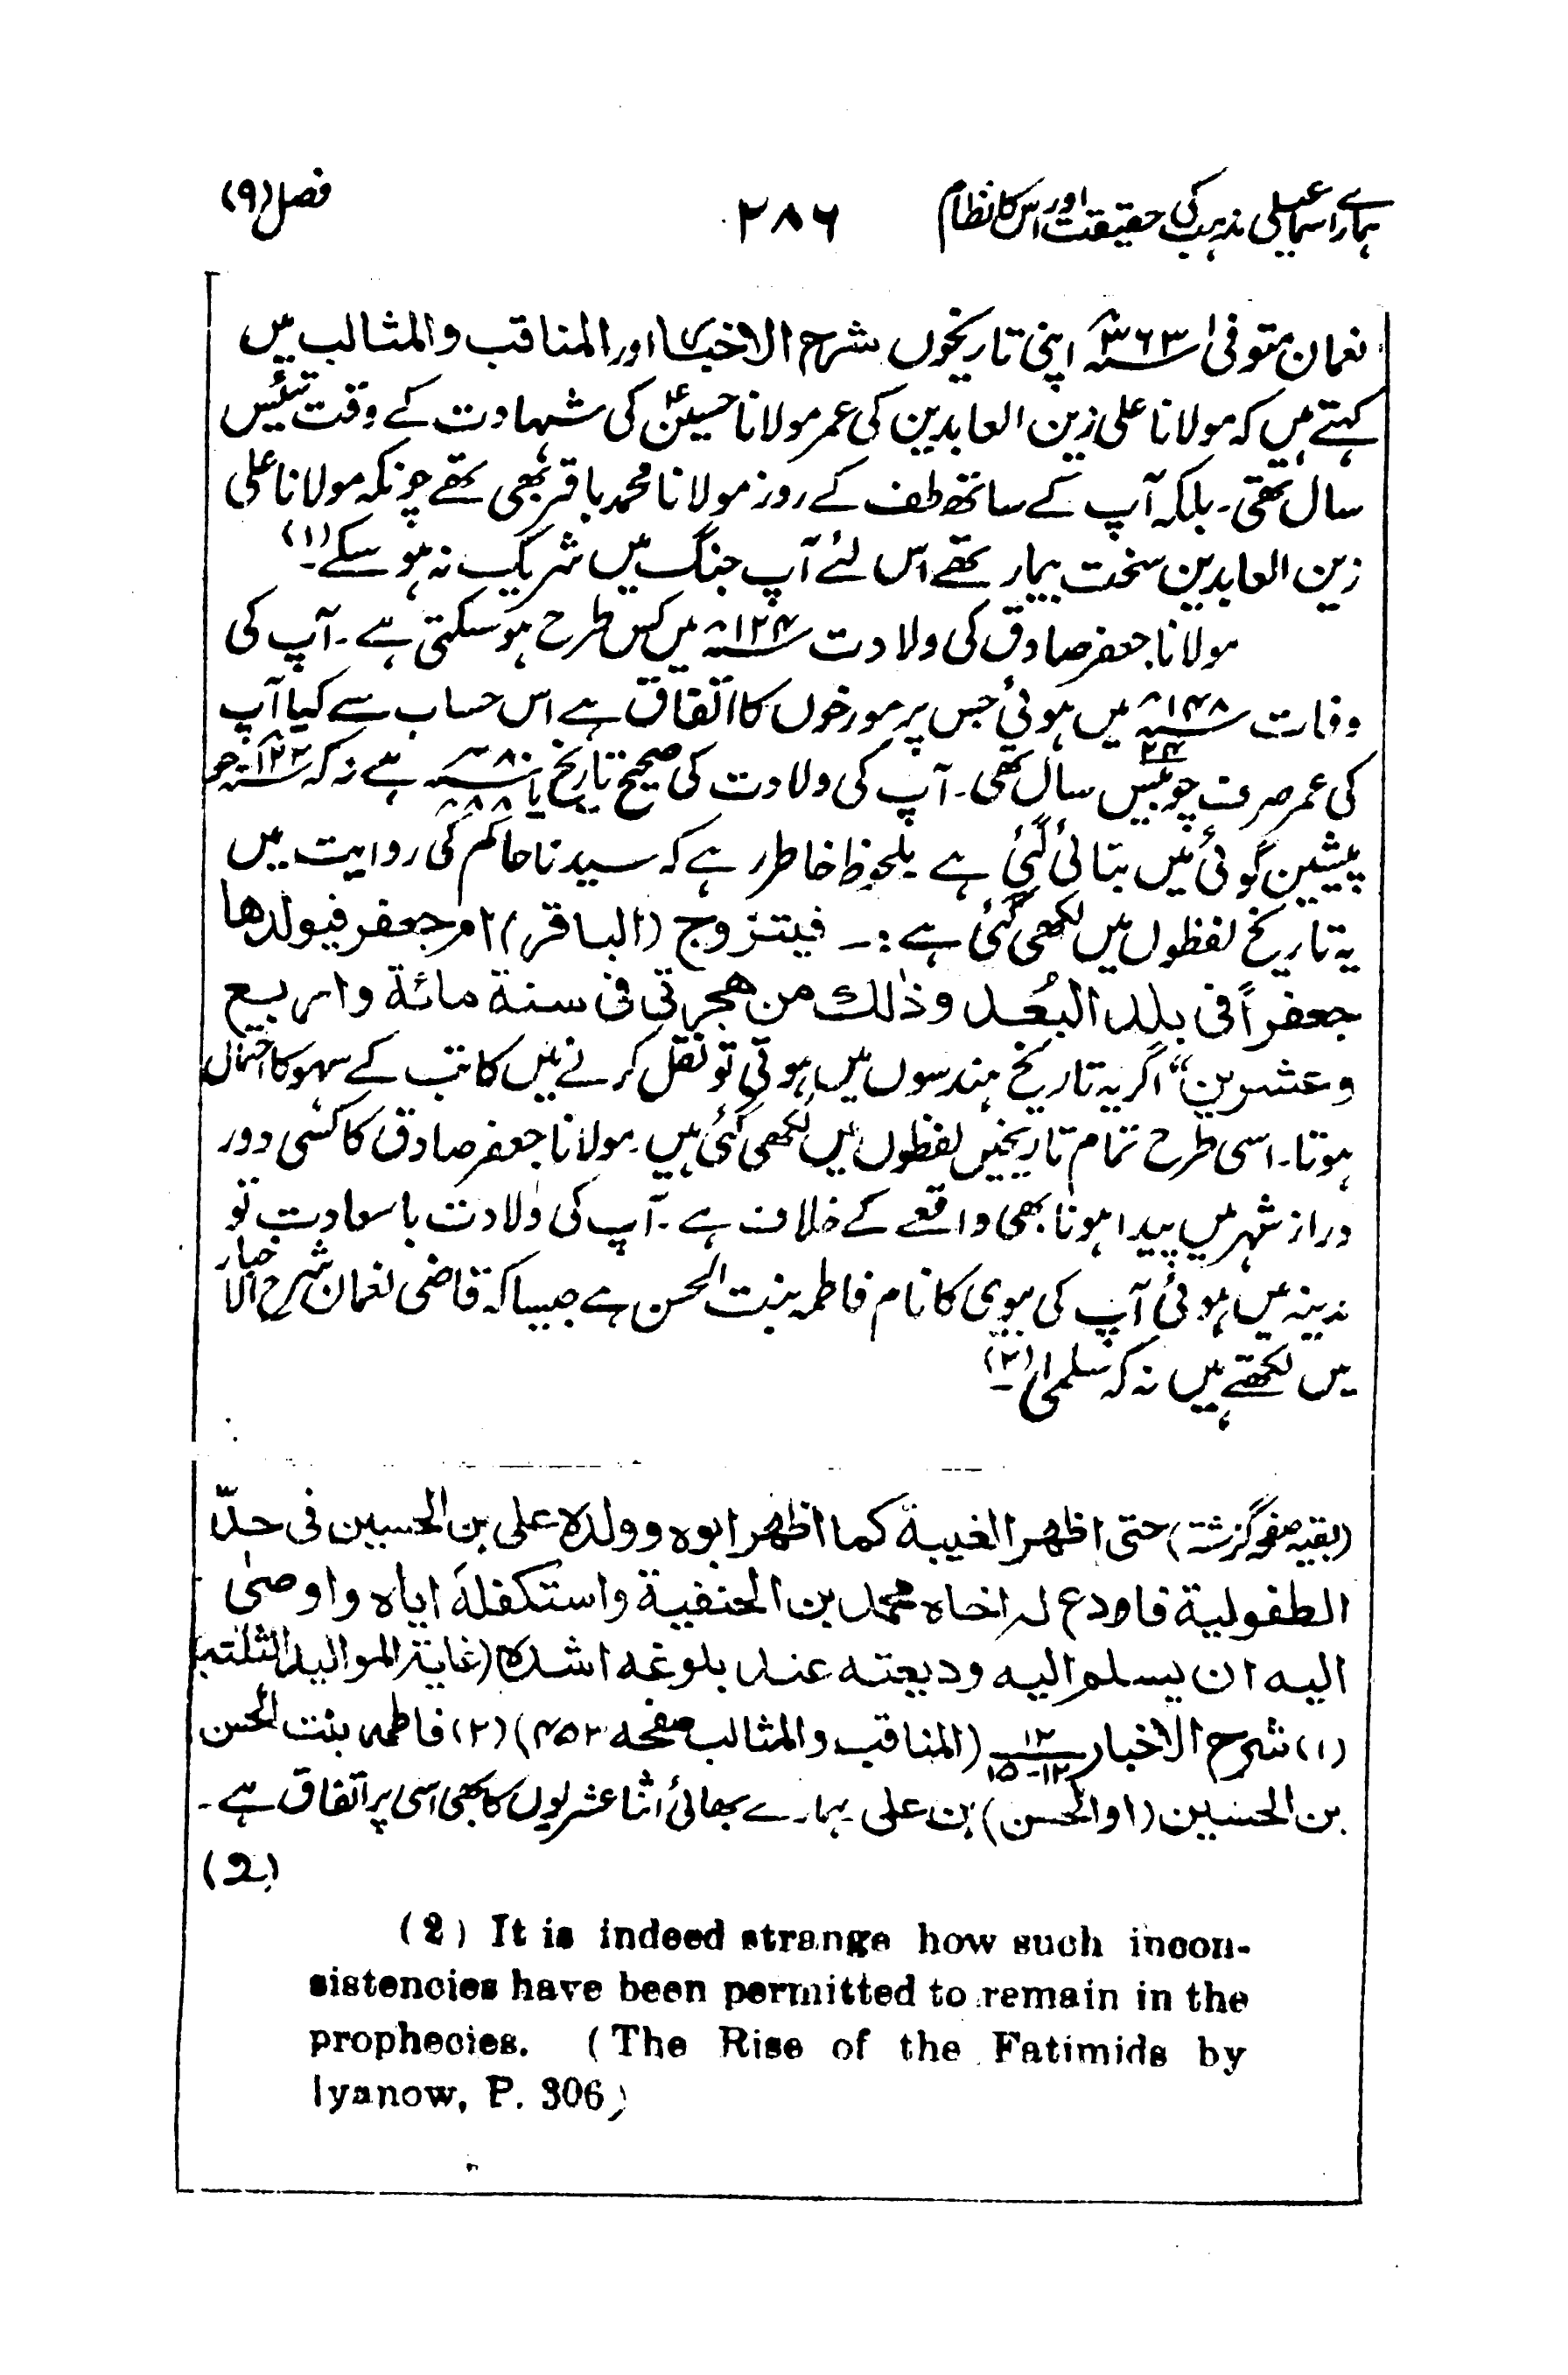 ہمارے اسماعیلی مذہب کی حقیقت اور اس کا نظام ۲۸۶ فصل (۹)
نعمان متوفیٰ ۳۶۳ھ اپنی تاریخوں شرح الاخبار اور المناقب والمثالب میں
کہتے ہیں کہ مولانا علی زین العابدین کی عمر مولانا حسینؑ کی شہادت کے وقت تیئیس
سال تھی۔ بلکہ آپ کے ساتھ طف کے روز مولانا محمد باقر بھی تھے چونکہ مولانا علی
زین العابدین سخت بیمار تھے اس لئے آپ جنگ میں شریک نہ ہو سکے۔(۱)
مولانا جعفر صادق کی ولادت ۱۲۴ھ میں کس طرح ہو سکتی ہے۔ آپ کی
وفات ۱۴۸ھ میں ہوئی جس پر مورخوں کا اتفاق ہے اس حساب سے کیا آپ
کی عمر صرف چوبیس ۲۴ سال تھی۔ آپ کی ولادت کی صحیح تاریخ ۸۰ھ یا ہے نہ کہ جو
پیشین گوئی میں بتائی گئی ہے یہ ملحوظ خاطر رہے کہ سیدنا حاکم کی روایت میں
یہ تاریخ لفظوں میں لکھی گئی ہے:۔ فیتزوج (الباقر) ام جعفر فیولدھا
جعفراً فی بلد البُعد وذٰلك من هجرتی فی سنة مائة واربع
وعشرین“ اگر یہ تاریخ ہندسوں میں ہوتی تو نقل کرنے میں کاتب کے سہو کا احتمال
ہوتا۔ اسی طرح تمام تاریخیں لفظوں میں لکھی گئی ہیں۔ مولانا جعفر صادق کا کسی دور
دراز شہر میں پیدا ہونا بھی واقعے کے خلاف ہے۔ آپ کی ولادت باسعادت تو
مدینہ میں ہوئی آپ کی بیوی کا نام فاطمہ بنت الحسن ہے جیسا کہ قاضی نعمان شرح الاخبار
میں لکھتے ہیں نہ کہ سلمیٰ (۲)۔
(بقیہ صفحہ گزشتہ) حتی اظهر الغیبة کما اظهر ابوہ وولدہ علی بن الحسین فی حدّ
الطفولیة فاودع لہ اخاہ محمد بن الحنفیة واستکفلہَ ایاہ واوصیٰ
الیه ان یسلم الیه ودیعته عند بلوغه اشدہ (غایة الموالید الثلثة)
(۱) شرح الاخبار ۱۲/۱۲-۱۵ (المناقب والمثالب صفحہ ۴۵۲) (۲) فاطمہ بنت الحسن
بن الحسین (او الحسن) بن علی ہمارے بھائی اثنا عشریوں کا بھی اسی پر اتفاق ہے۔
(2)
(2) It is indeed strange how such incon-
sistencies have been permitted to remain in the
prophecies. (The Rise of the Fatimids by
Iyanow, P. 306)